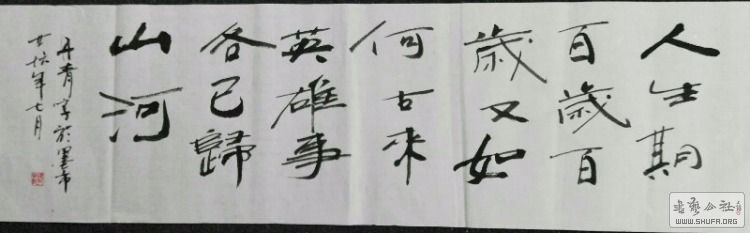 人生期
百歲百
歲又如
何古來
英雄事
各已歸
山河
丹青字於墨市
廿陸年七月
书艺公社
WWW.SHUFA.ORG